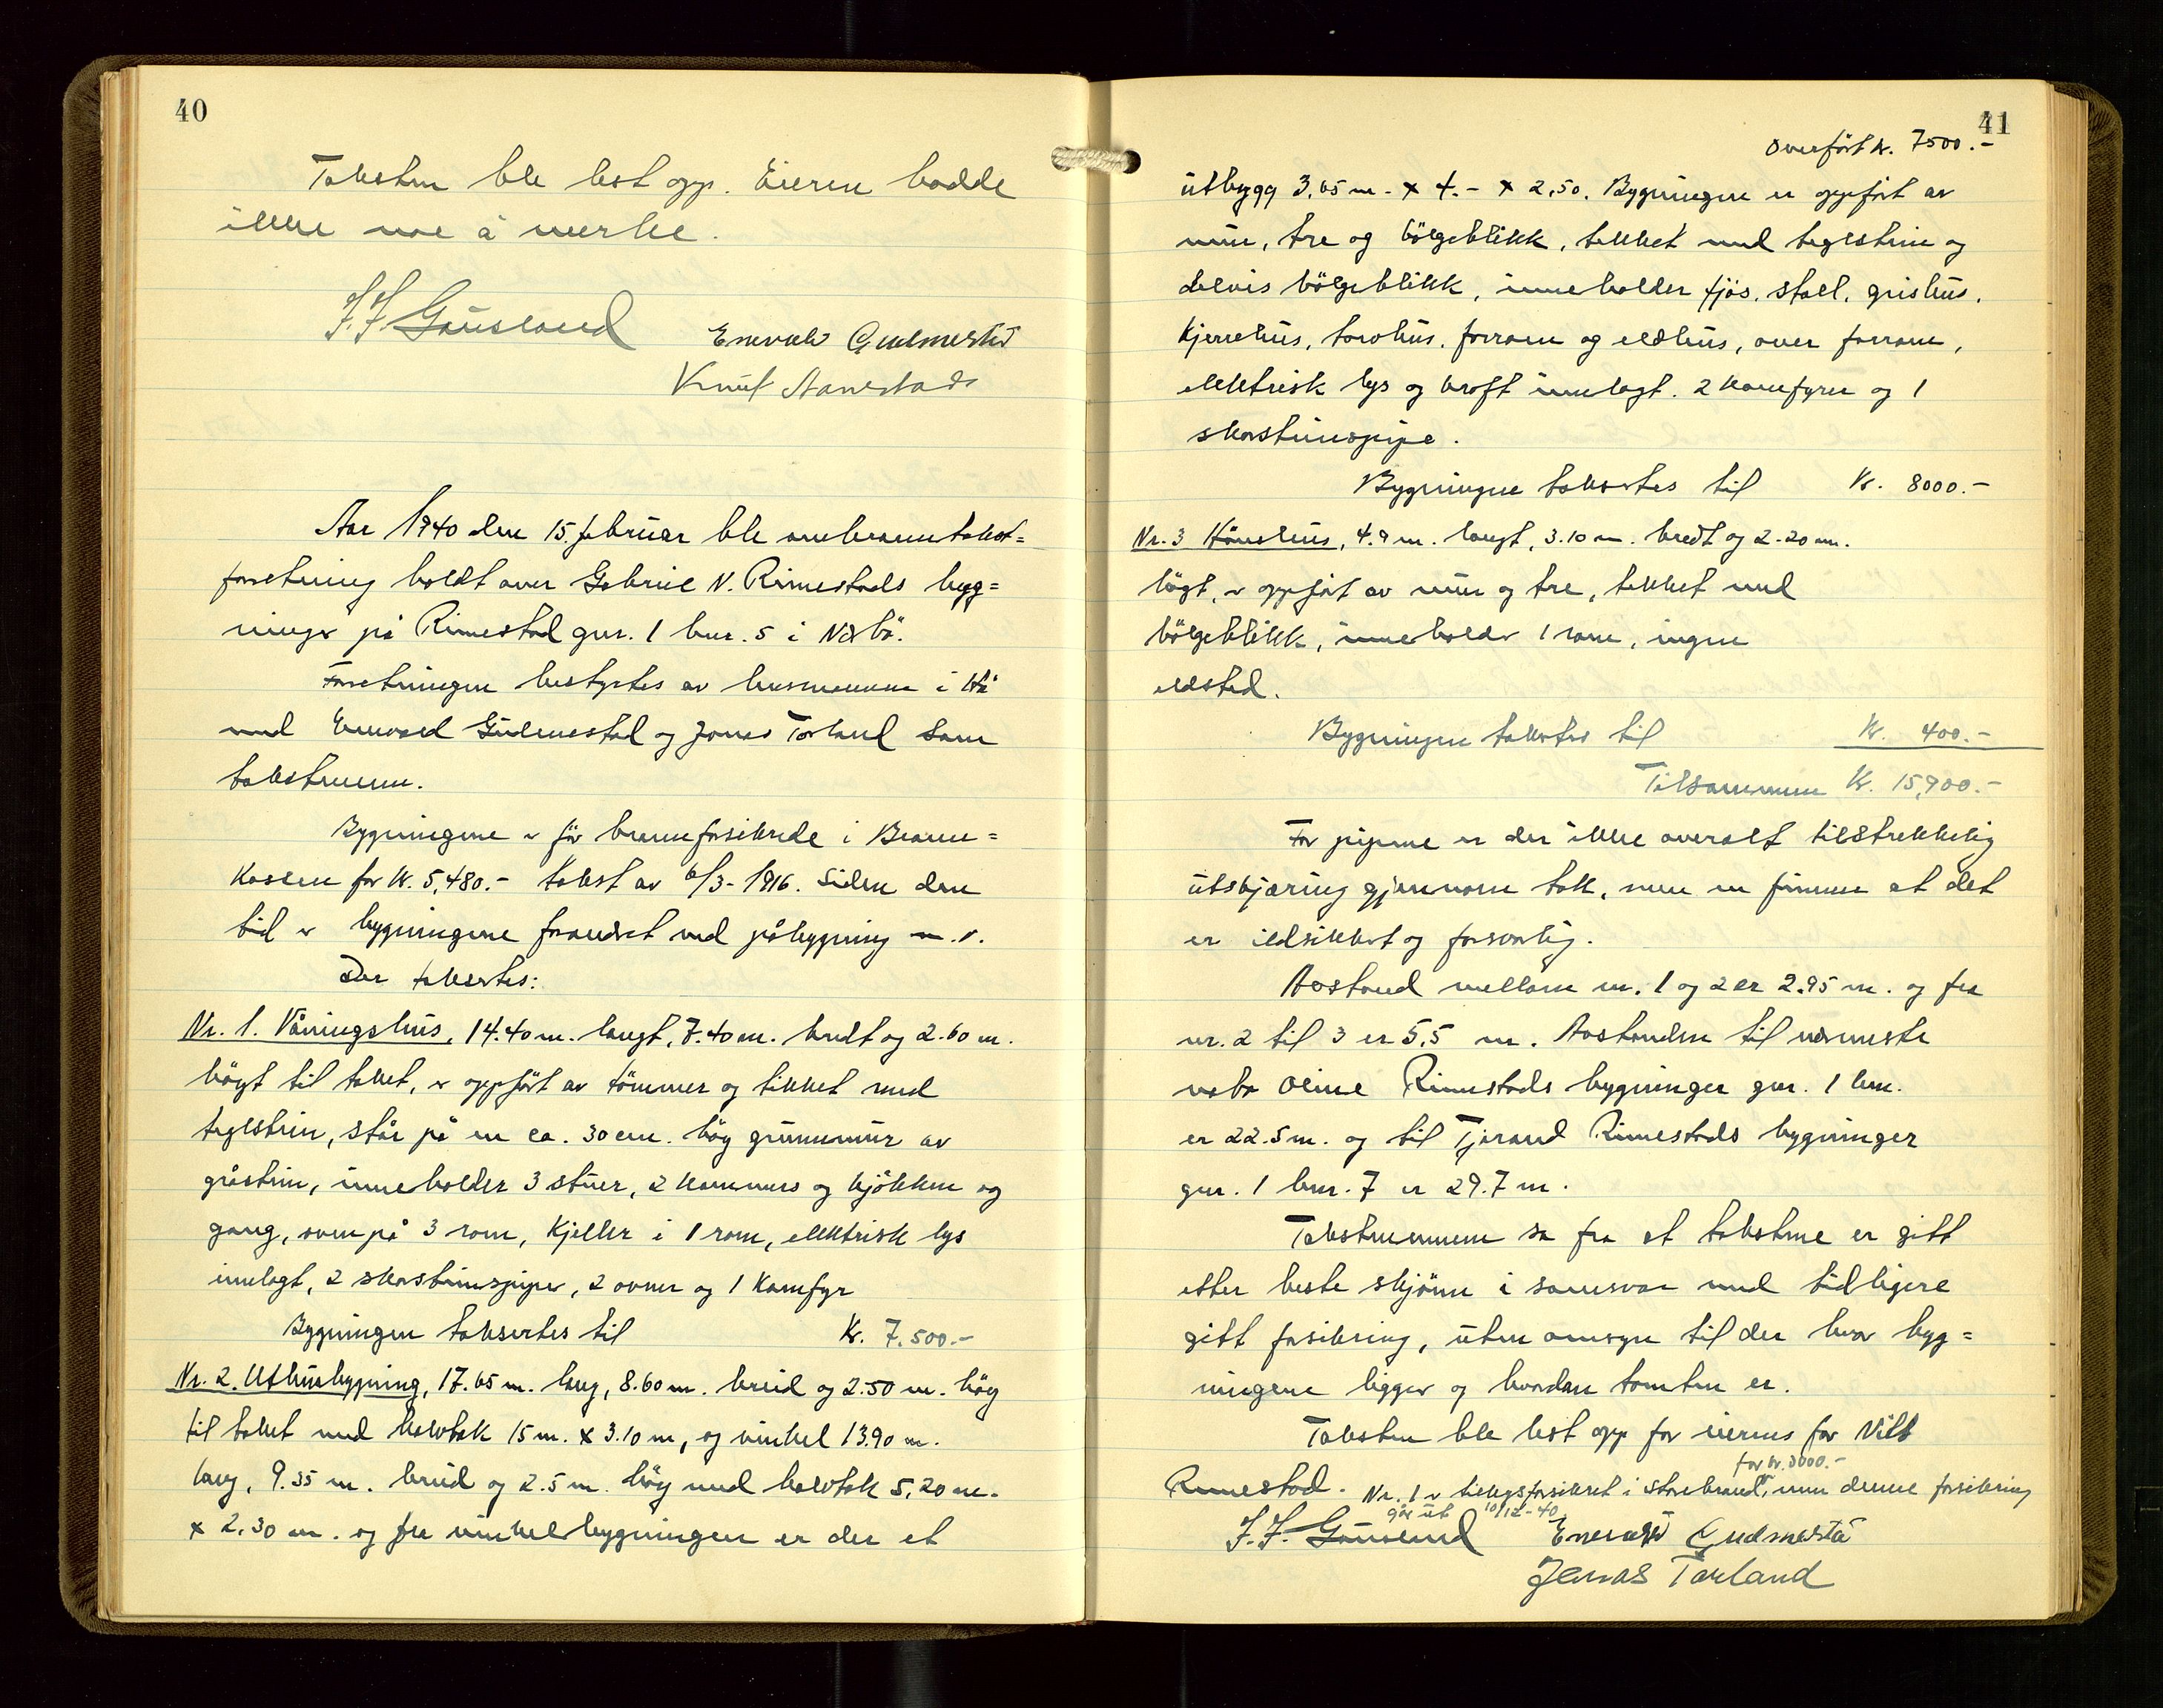 40
Taksten ble lest opp. Eieren hadde
ikke noe å merke.
J. J. Gausland Enevald Gudmestad
Knut Aanestad
Aar 1940 den 15. februar ble ombranntakst=
forretning holdt over Gabriel N. Rimestads byg=
ninger på Rimestad gnr. 1 bnr. 5 i Nærbö.
Forretningen bestyrtes av lensmannen i Hå
med Enevald Gudmestad og Jonas Torland som
takstmenn.
Bygningene er för brannforsikrede i Brann=
kassen for kr. 5,480.- takst av 6/3-1916. Siden den
tid er bygningene forandret med påbygning m. v.
Der taksertes:
Nr. 1. Våningshus, 14.40 m. langt, 7.40 m. bredt og 2.60 m.
högt til taket, er oppfört av tömmer og tekket med
teglstein, står på en ca. 30 cm. höy grunnmur av
gråstein, inneholder 3 stuer, 2 kammers og kjökken og
gang, ovenpå 3 rom, kjeller i 1 rom, elektrisk lys
innlagt, 2 skorsteinspiper, 2 ovner og 1 komfyr
Bygningen taksertes til Kr. 7.500.-
Nr. 2. Uthusbygning, 17.65 m. lang, 8.60 m. breid og 2.50 m. höy
til taket med halvtak 15 m. x 3.10 m, og vinkel 13.90 m.
lang, 9.35 m. breid og 2.5 m. höy med halvtak 5,20 m.
x 2,30 m. og fra vinkelbygningen er der et
41
Overfört kr. 7500.-
utbygg 3,65 m. x 4.- x 2,50. Bygningen er oppfört av
mur, tre og bölgeblikk, tekket med teglstein og
delvis bölgeblikk, inneholder fjös, stall, grishus,
kjerrehus, torvhus, forrom og eldhus, over forrom,
elektrisk lys og kraft innlagt. 2 komfyrer og 1
skorsteinspipe.
Bygningen taksertes til Kr. 8000.-
Nr. 3 Hönsehus, 4.9 m. langt, 3.10 m. bredt og 2.20 m.
högt, er oppfört av mur og tre, tekket med
bölgeblikk, inneholder 1 rom, ingen
eldsted.
Bygningen taksertes til Kr. 400.-
Tilsammen Kr. 15,900.-
For pipene er der ikke overalt tilstrekkelig
utskjæring gjennom tak, men en finner at det
er ildsikkert og forsvarlig.
Avstand mellom nr. 1 og 2 er 2.95 m. og fra
nr. 2 til 3 er 5,5 m. Avstanden til nærmeste
nabo Oline Rimestads bygninger gnr. 1 bnr.
er 22.5 m. og til Tjerand Rimestads bygninger
gnr. 1 bnr. 7 er 29.7 m.
Takstmennene sa fra at takstene er gitt
etter beste skjönn i samsvar med tidligere
gitt forsikring, uten omsyn til der hvor byg=
ningene ligger og hvordan tomten er.
Taksten ble lest opp for eierens far Nils
for kr. 3000.-
Rimestad. Nr. 1 er tilleggsforsikret i Storebrand, men denne forsikring
går ut 10/12-40
J. J. Gausland Enevald Gudmestad
Jonas Torland